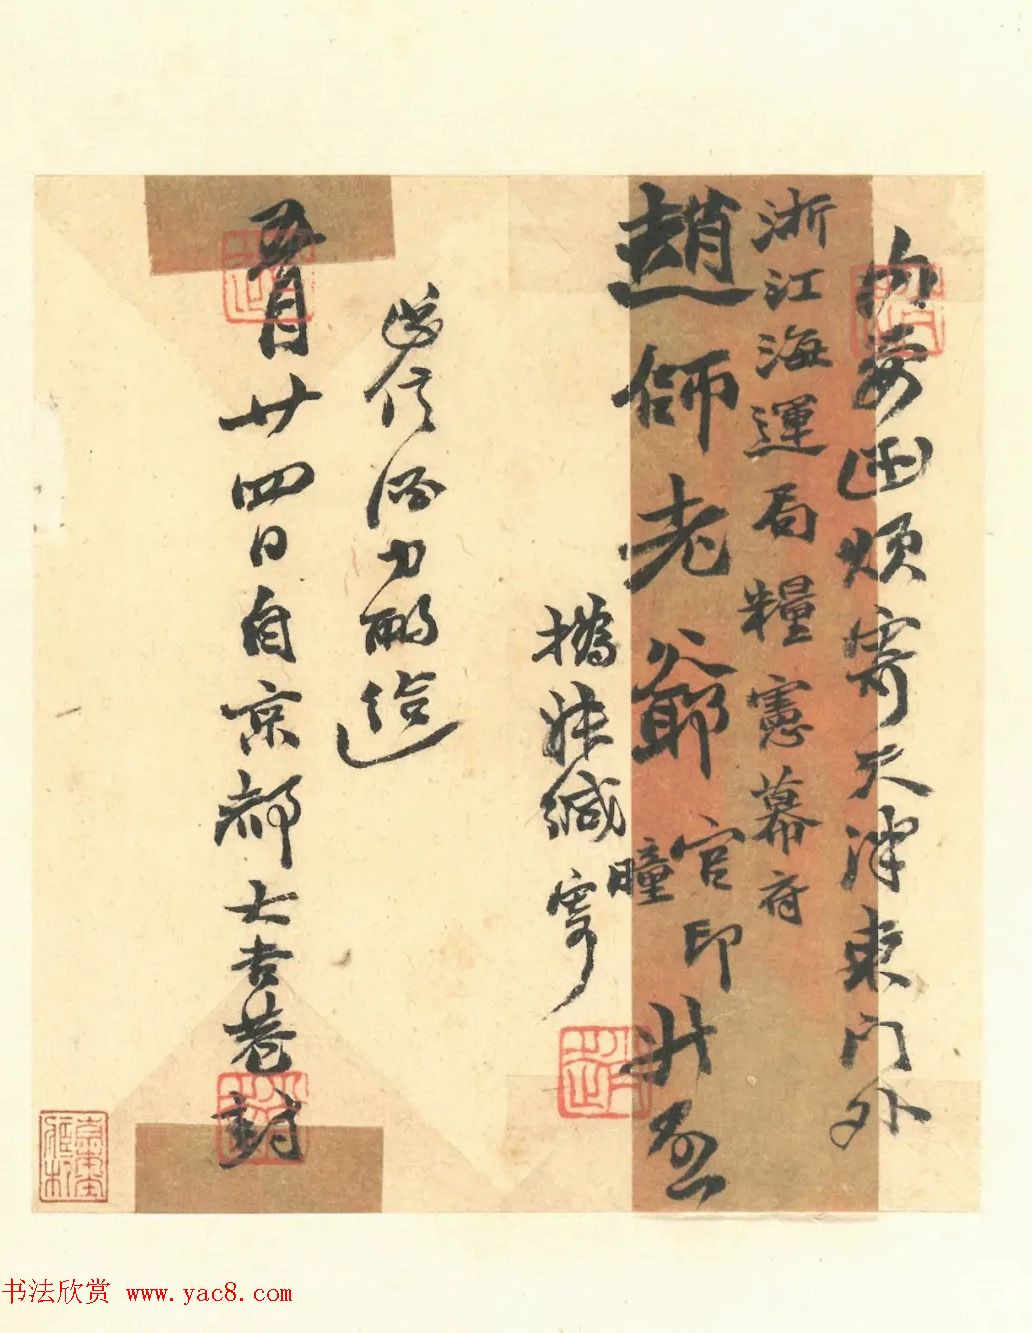 內要函煩寄天津東門外
浙江海運局糧憲幕府
趙師老爺官印瞳升啟
撝叔緘寄
信酒力酌
五月廿四日自京都七吉巷封
书法欣赏 www.yac8.com